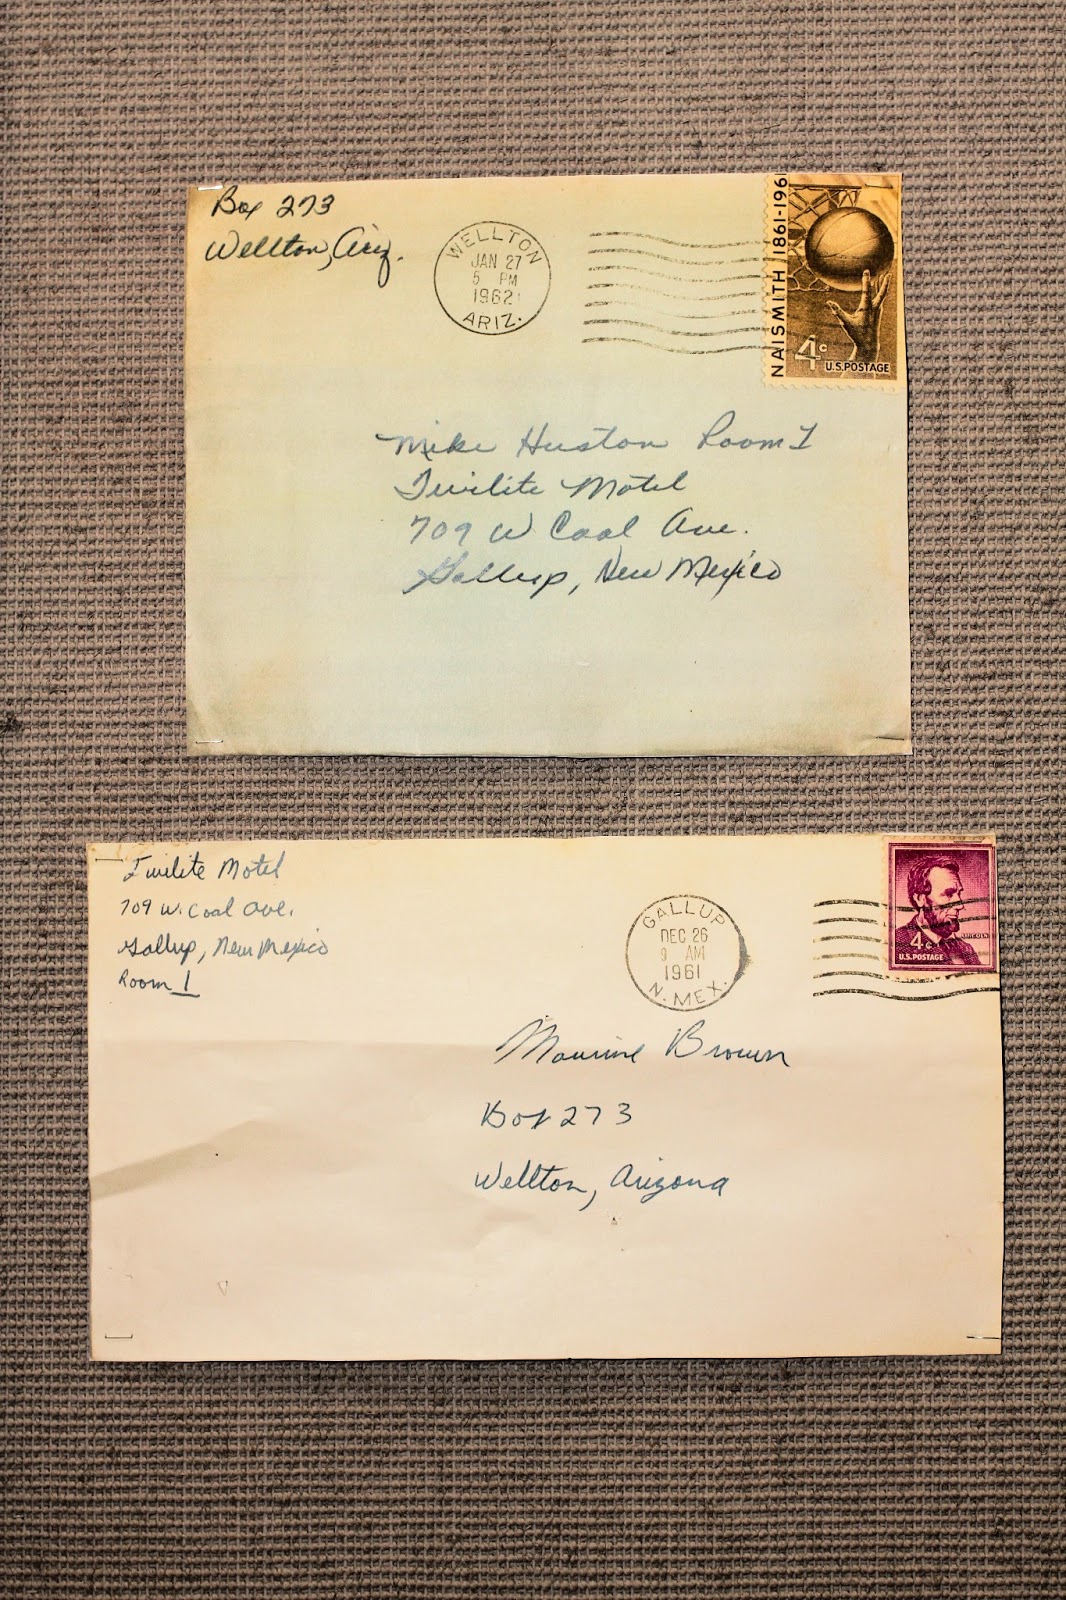 Box 273
Wellton, Ariz.
WELLTON
JAN 27
5 PM
1962
ARIZ.
NAISMITH 1861-1961
4c
U.S. POSTAGE
Mike Huston Room 1
Twilite Motel
709 W Coal Ave.
Gallup, New Mexico
Twilite Motel
709 W. Coal Ave.
Gallup, New Mexico
Room 1
GALLUP
DEC 26
9 AM
1961
N. MEX.
LINCOLN
4c
U.S. POSTAGE
Maurine Brown
Box 273
Wellton, Arizona